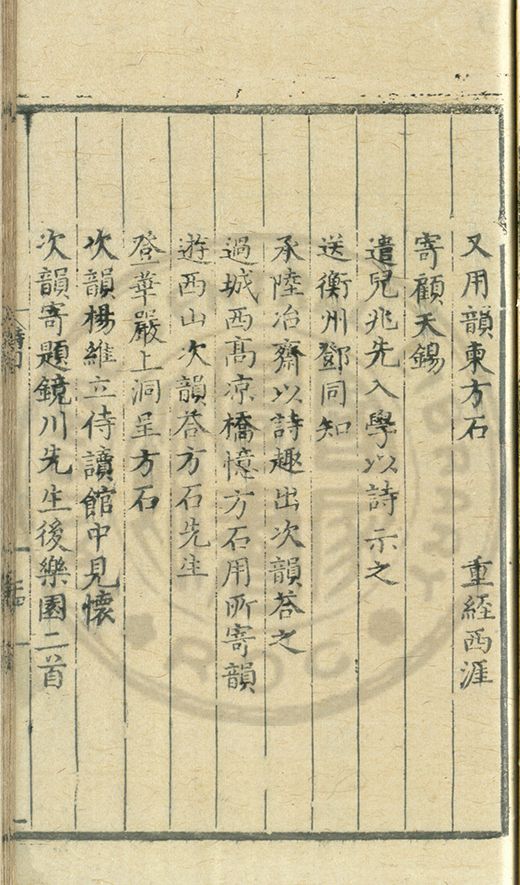 又用韻柬方石　重經西涯
寄顧天錫
遣兒兆先入學以詩示之
送衡州鄧同知
承陸冶齋以詩趣出次韻荅之
過城西高凉橋憶方石用所寄韻
遊西山次韻荅方石先生
登華嚴上洞呈方石
次韻楊維立侍讀館中見懷
次韻寄題鏡川先生後樂園二首